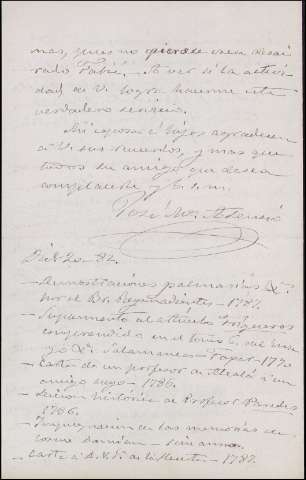 mas, pues no quiero se vea desai
rado Fabié. A ver si la activi
dad de V. logra hacerme este
verdadero servicio.
Mi esposa é hijos agradecen
á V. sus recuerdos, y mas que
todos su amigo que desea
complacerle y b. s. m.
José Mª Asensio
20 - 82.
- Demostraciones palmarias &ª
por el Br. - 1787.
- Suplemento al artículo Trigueros
comprendido en el tomo 6. del
&ª Salamanca - 1790
- Carta de un profesor de Alcalá á un
amigo suyo - 1786.
- Leccion histórica al Profesor Paredes
1786.
- de las memorias de
Cosme Damian - sin año.
- Carta á D. de la Huerta - 1787.